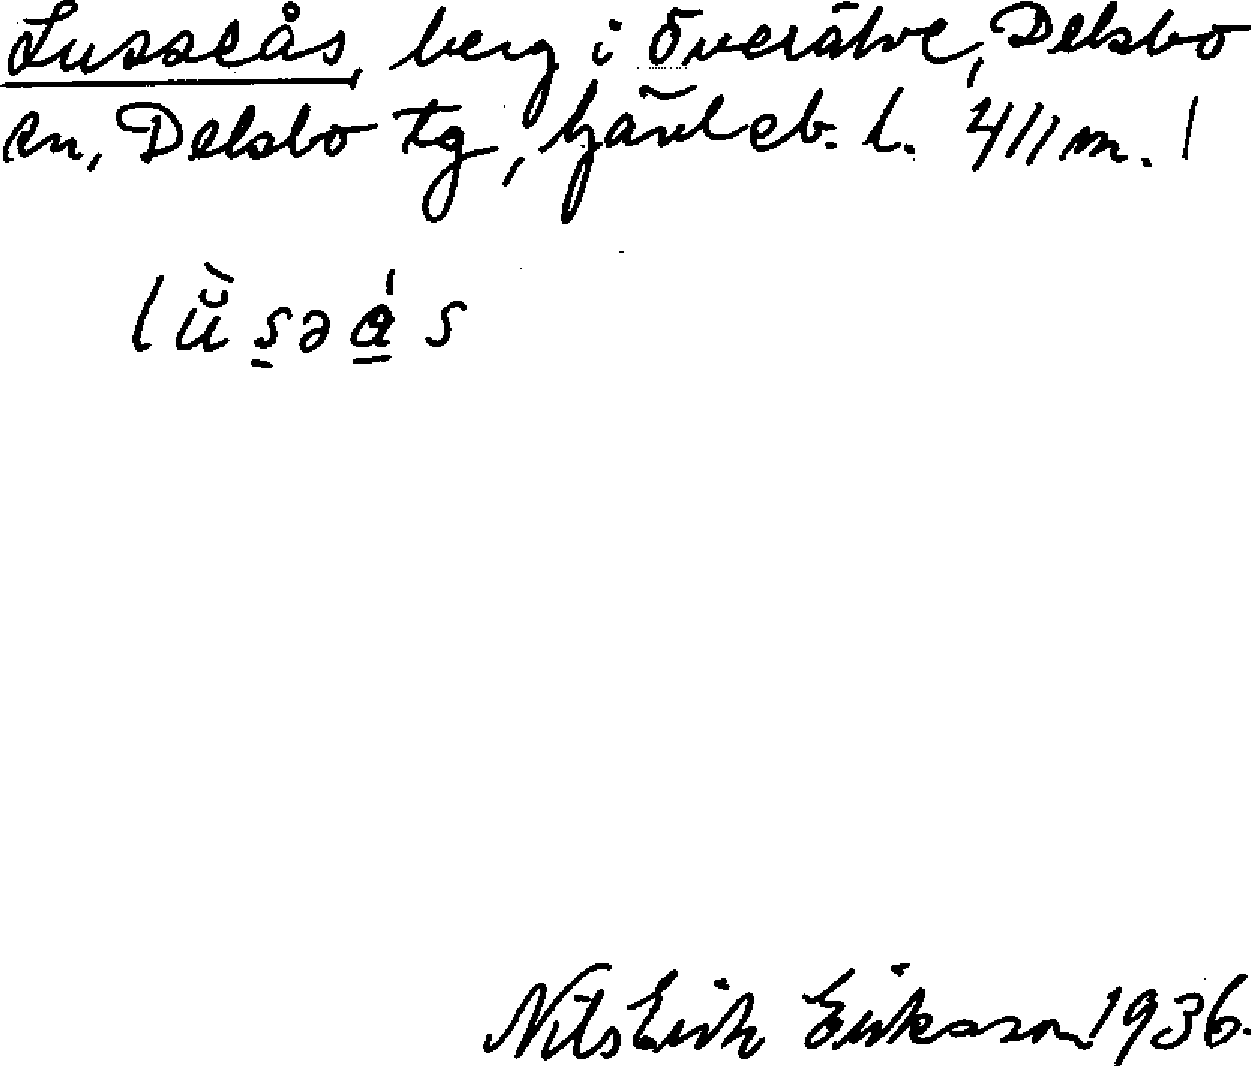 Lusseås, berg i Överälve, Delsbo
sn, Delsbo tg, Gävleb. l. 411 m.
Nils Erik Eriksson 1936.